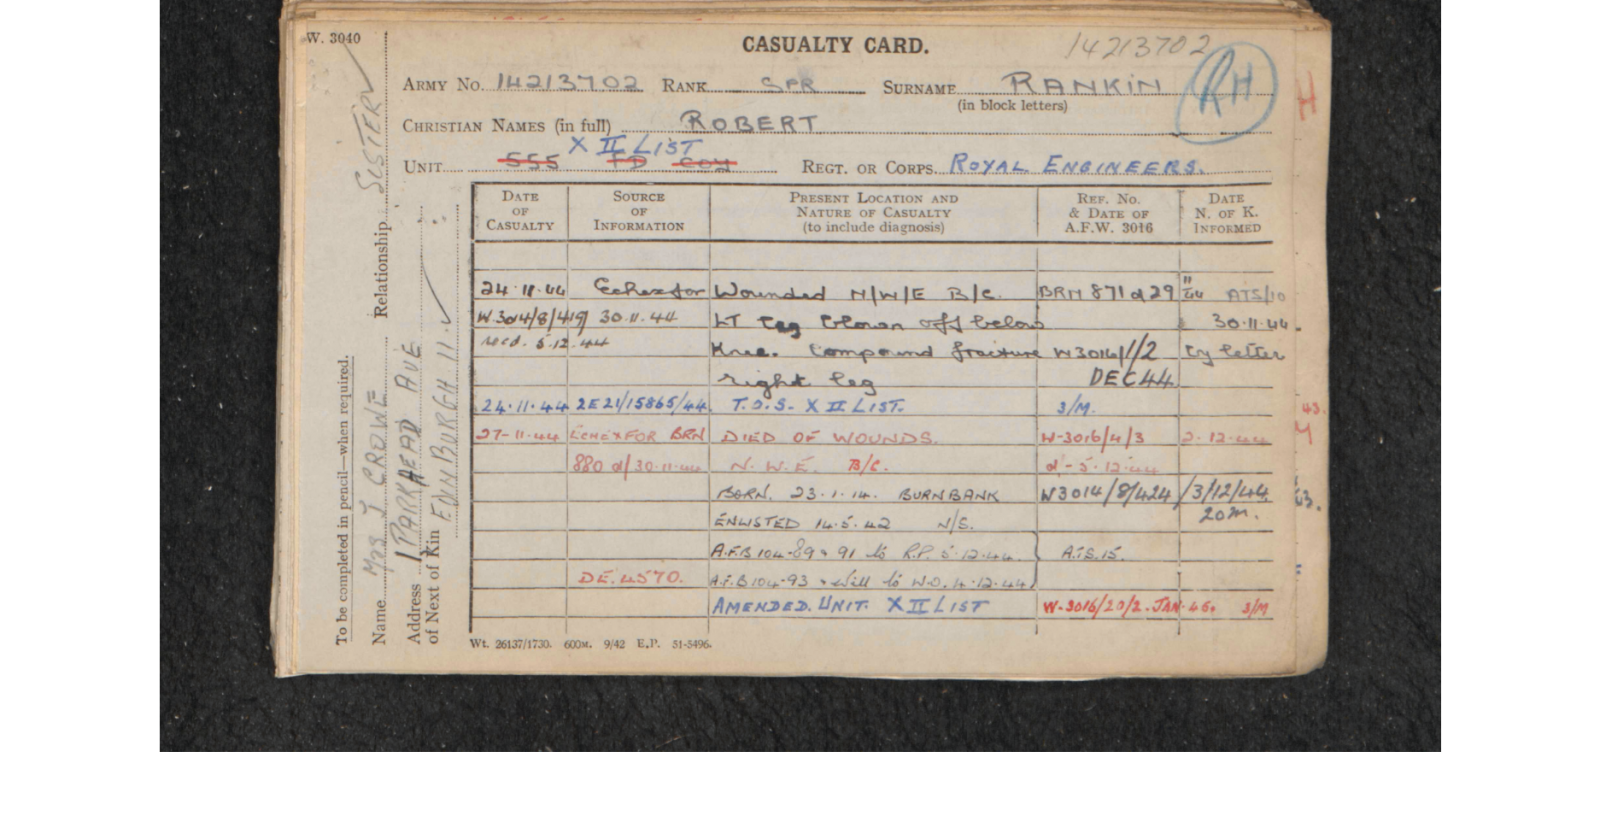 W. 3040
CASUALTY CARD.
14213702
RH
ARMY No. 14213702 RANK SPR SURNAME RANKIN
(in block letters)
CHRISTIAN NAMES (in full) ROBERT
X II LIST
UNIT 555 FD COY REGT. OR CORPS. ROYAL ENGINEERS.
DATE OF CASUALTY SOURCE OF INFORMATION PRESENT LOCATION AND NATURE OF CASUALTY (to include diagnosis) REF. No. & DATE OF A.F.W. 3016 DATE N. OF K. INFORMED
24.11.44 Echexfor Wounded N/W/E B/C. BRN 871 d 29/11/44 ATS/10
W.3014/8/419 30.11.44 LT leg blown off below 30.11.44.
recd. 5.12.44 Knee. Compound fracture W3016/1/2 by letter
right leg DEC 44
24.11.44 2E21/15865/44. T.O.S. X II LIST. 3/M.
27-11-44 ECHEXFOR BRN DIED OF WOUNDS. W-3016/4/3 2.12.44
880 d/30.11.44 N.W.E. B/C. d-5.12.44
BORN. 23.1.14. BURNBANK W3014/8/424/3/12/44
20M.
ENLISTED 14.5.42 N/S.
A.F.B 104-89 & 91 to R.P. 5.12.44 A.T.S.15.
DE.4570. A.F.B 104-93 & Will to W.O. 4.12.44
AMENDED. UNIT. X II LIST W-3016/20/2.JAN.45. 3/M
Wt. 26137/1730. 600M. 9/42 E.P. 51-5496.
To be completed in pencil—when required.
Name MRS J CROWE Relationship SISTER
Address 1 PARKHEAD AVE
of Next of Kin EDINBURGH 11.